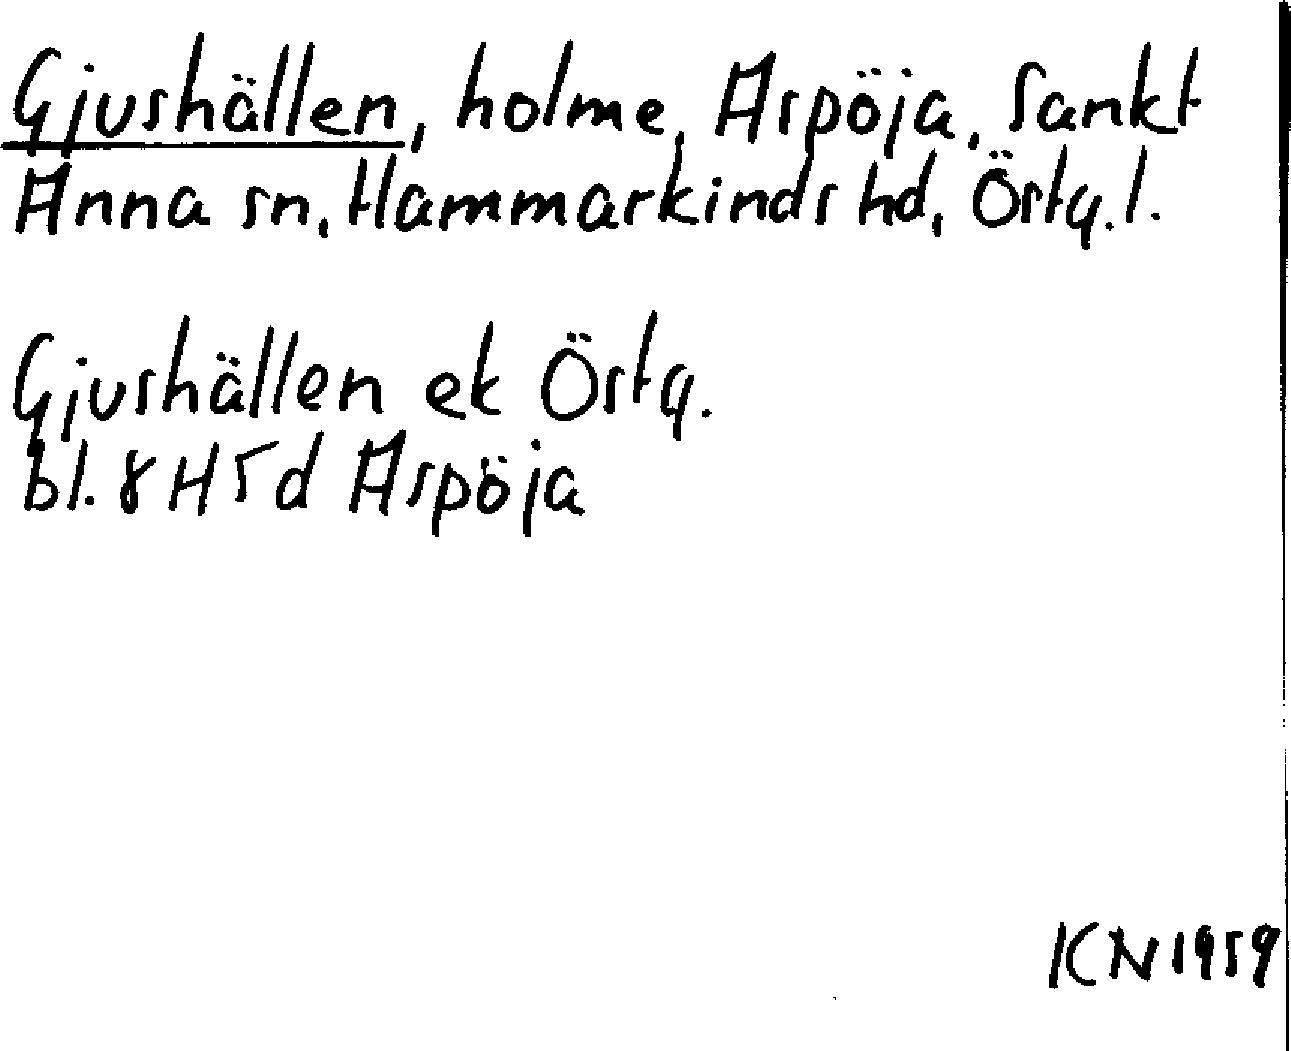 Gjushällen, holme, Aspöja, Sankt
Anna sn, Hammarkinds hd, Östg. l.
Gjushällen ek Östg.
bl. 8 H 5 d Aspöja
KN 1959